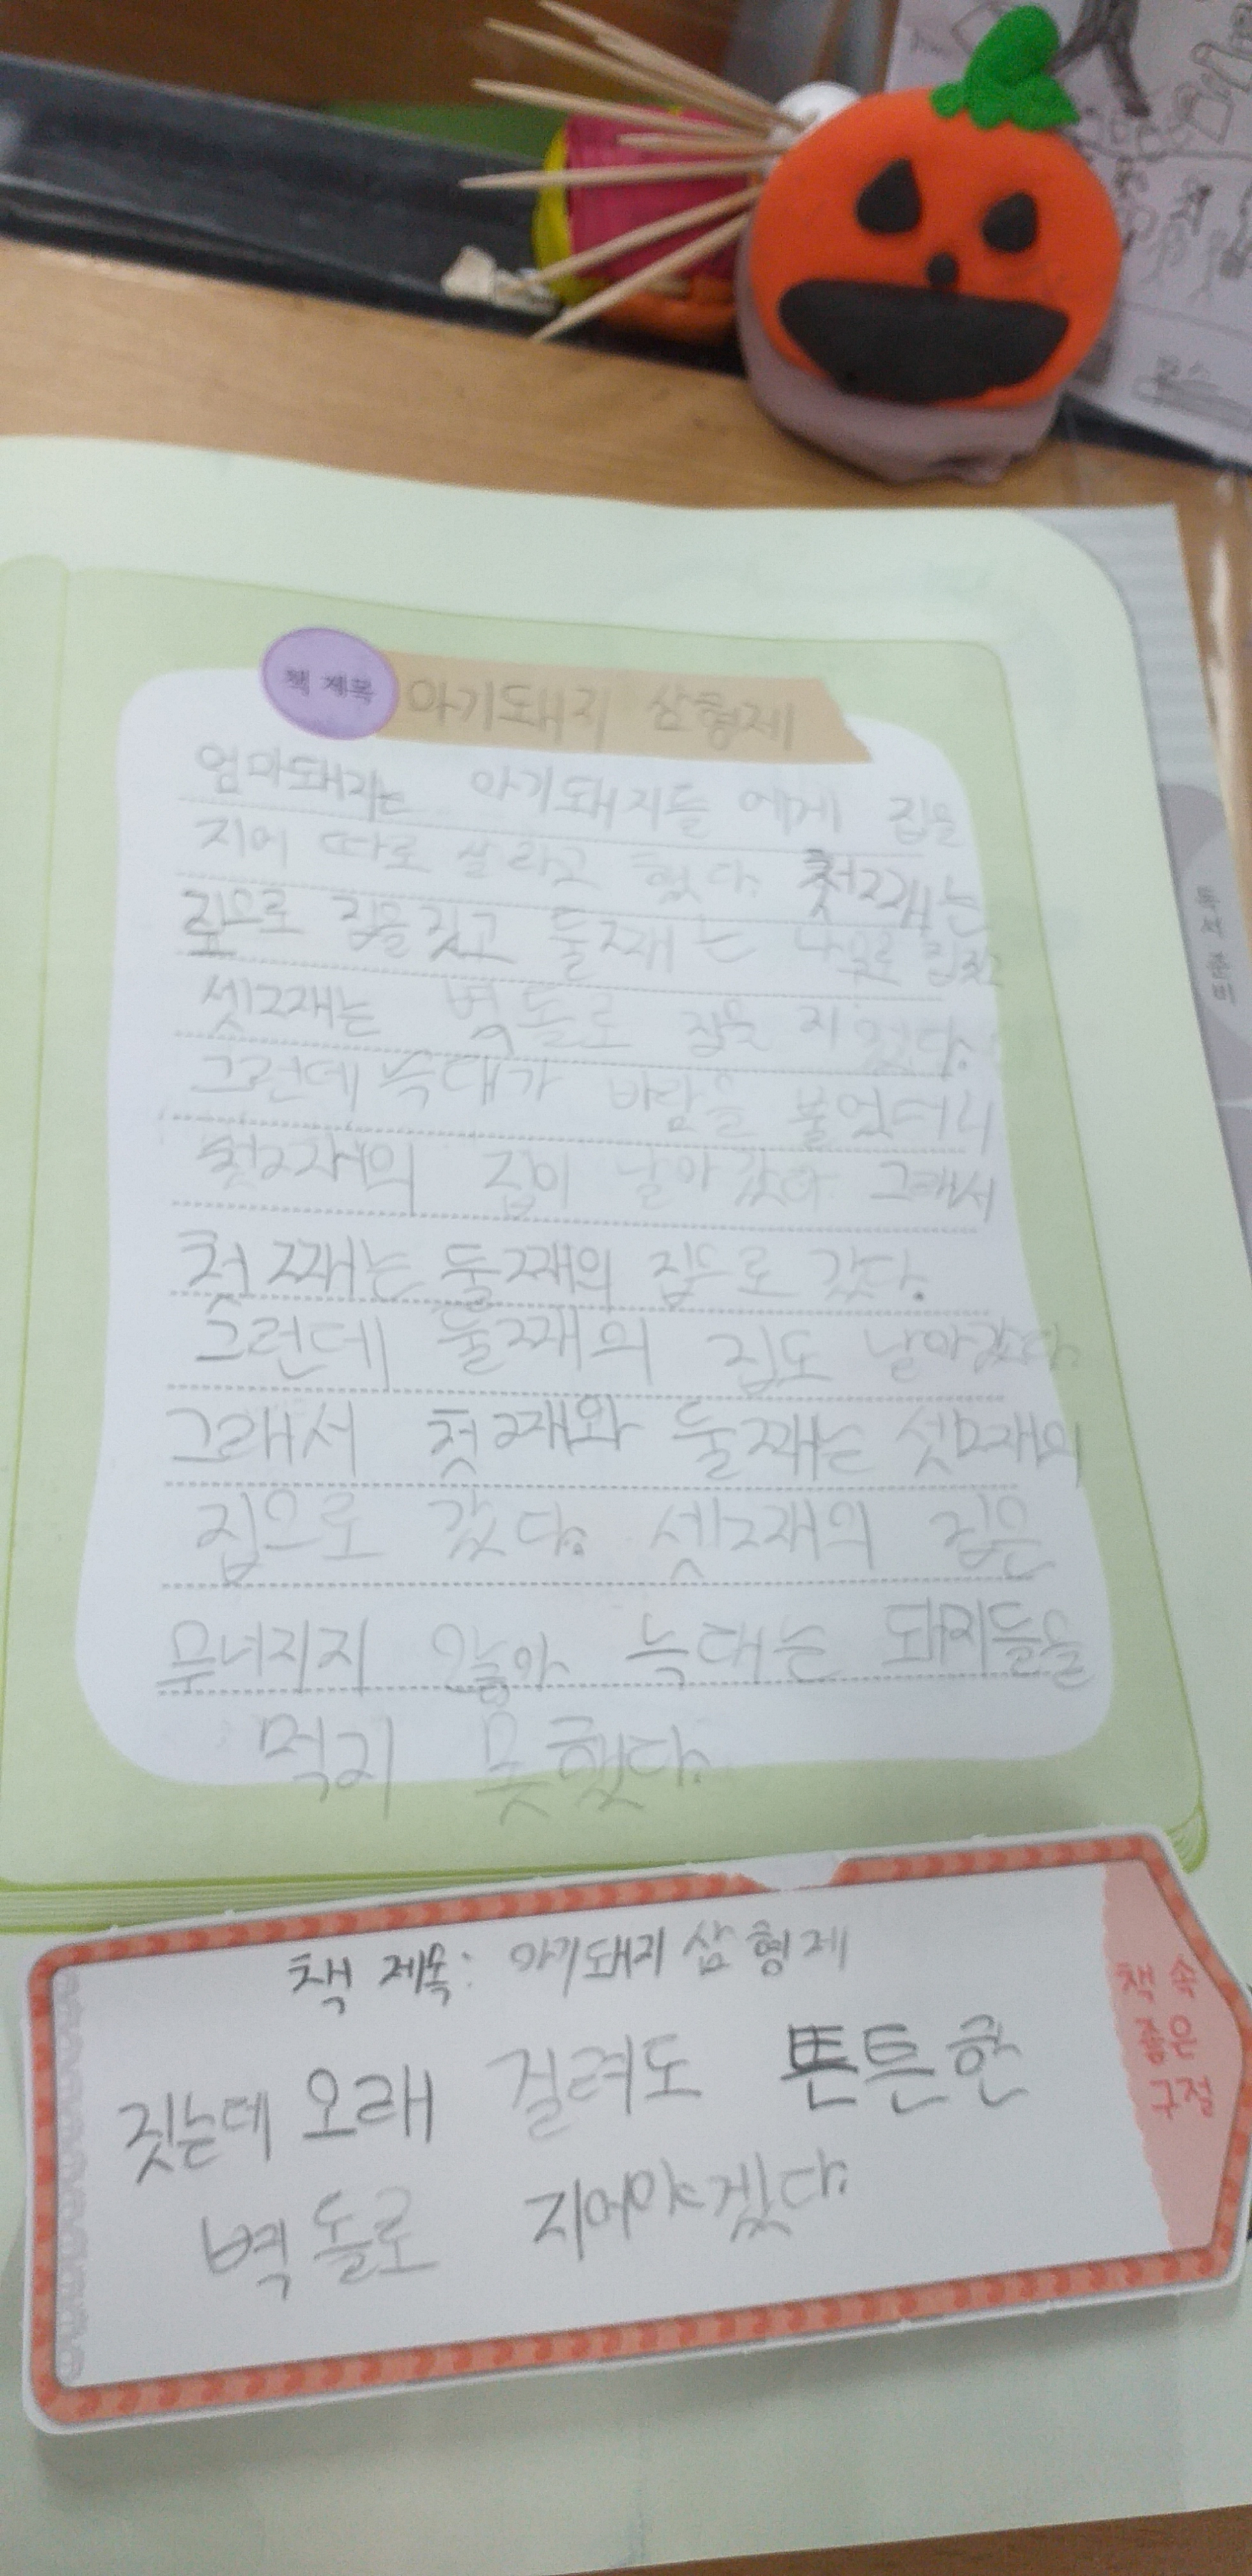 책 제목 아기돼지 삼형제
엄마돼지는 아기돼지들 에게 집을
지어 따로 살라고 했다. 첫째는
짚으로 집을 짓고 둘째는 나무로 짓고
셋째는 벽돌로 집을 지었다.
그런데 늑대가 바람을 불었더니
첫째의 집이 날아갔다 그래서
첫째는 둘째의 집으로 갔다.
그런데 둘째의 집도 날아갔다.
그래서 첫째와 둘째는 셋째의
집으로 갔다. 셋째의 집은
무너지지 않아 늑대는 돼지들을
먹지 못했다.
책 제목: 아기돼지 삼형제
짓는데 오래 걸려도 튼튼한
벽돌로 지어야겠다.
책 속
좋은
구절